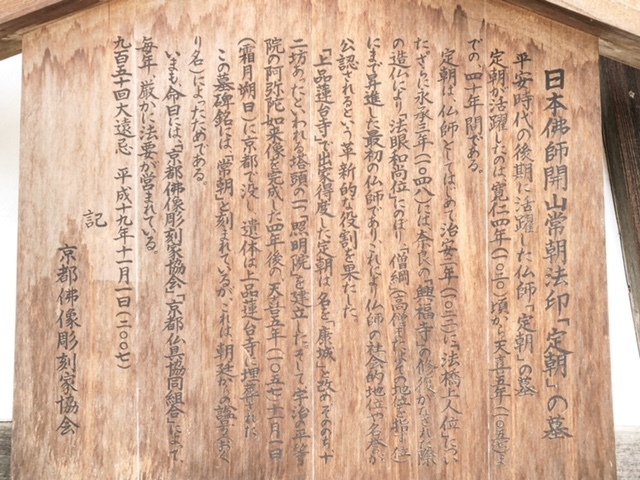 日本佛師開山常朝法印「定朝」の墓
平安時代の後期に活躍した仏師「定朝」の墓
定朝が活躍したのは、寛仁四年(一〇二〇)頃から天喜五年(一〇五七)ま
での、四十年間である。
定朝は、仏師としてはじめて治安二年(一〇二二)に「法橋上人位」につい
た。さらに永承三年(一〇四八)には、奈良の「興福寺」の修復がなされた際
の造仏により「法眼和尚位」にのぼり、僧綱(高僧またはその地位を指す位)
にまで昇進した最初の仏師であり、これにより仏師の社会的地位や名誉が
公認されるという革新的な役割を果たした。
「上品蓮台寺」で出家得度した定朝は名を「康城」と改め、そののち、十
二坊あったといわれる塔頭の一つ「照明院」を建立した。そして宇治の平等
院の阿弥陀如来像を完成した四年後の天喜五年(一〇五七)十一月一日
(霜月朔日)に京都で没し、遺体は上品蓮台寺に埋葬された。
この墓碑銘には、「常朝」と刻まれているが、これは、朝廷からの
り名)によったためである。
いまも命日には、「京都佛像彫刻家協会」「京都仏具協同組合」によって、
毎年、厳かに法要が営まれている。
九百五十回大遠忌 平成十九年十一月一日(二〇〇七)
記
京都佛像彫刻家協会